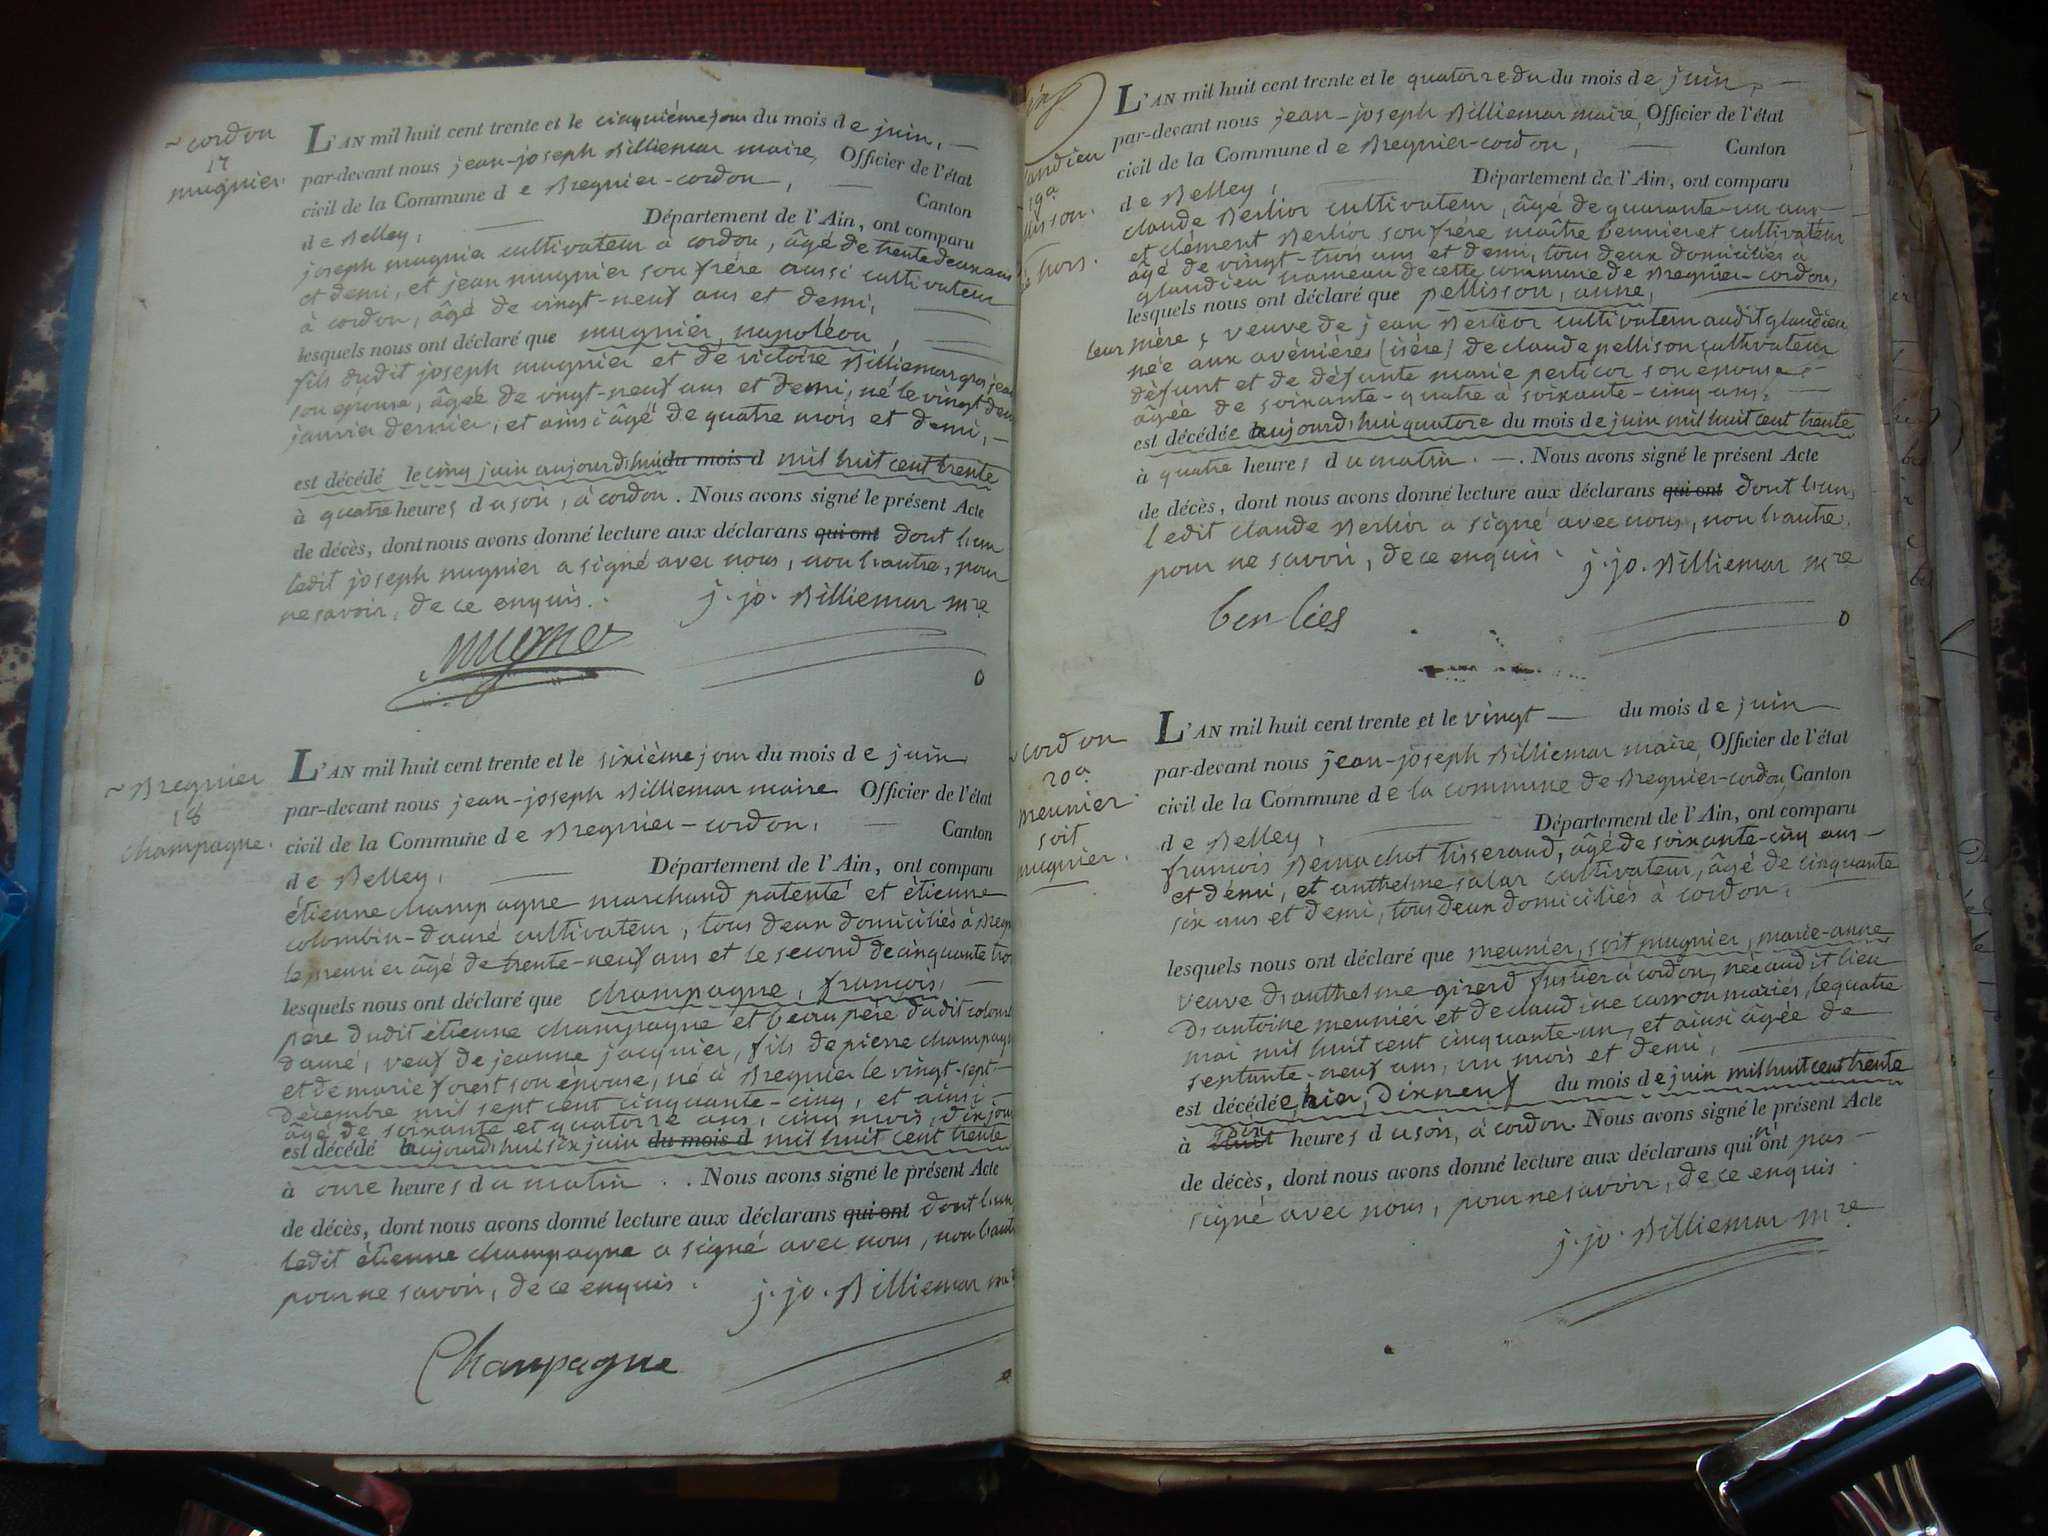 ~ cordon
17
mugnier.
L'AN mil huit cent trente et le cinquième jour du mois de juin, —
par-devant nous jean-joseph Billiemar maire, Officier de l'état
civil de la Commune de Bregnier-cordon, — Canton
de Belley, — Département de l'Ain, ont comparu
joseph mugnier cultivateur à cordon, âgé de trente deux ans
et demi, et jean mugnier son frère aussi cultivateur
à cordon, âgé de vingt-neuf ans et demi,
lesquels nous ont déclaré que mugnier, napoléon,
fils dudit joseph mugnier et de victoire Billiemar gros jean
son épouse, âgée de vingt-neuf ans et demi, né le vingt deux
janvier dernier, et ainsi âgé de quatre mois et demi, —
est décédé le cinq juin aujourd'hui du mois d mil huit cent trente
à quatre heures du soir, à cordon. Nous avons signé le présent Acte
de décès, dont nous avons donné lecture aux déclarans qui ont dont l'un
ledit joseph mugnier a signé avec nous, non l'autre, pour
ne savoir, de ce enquis. j. jo. Billiemar mre
mugnier
~ Bregnier
18
champagne.
L'AN mil huit cent trente et le sixième jour du mois de juin
par-devant nous jean-joseph Billiemar maire Officier de l'état
civil de la Commune de Bregnier-cordon, — Canton
de Belley, — Département de l'Ain, ont comparu
étienne champagne marchand patenté et étienne
colombin-dauré cultivateur, tous deux domiciliés à Bregn
le premier âgé de trente-neuf ans et le second de cinquante tro
lesquels nous ont déclaré que champagne, françois, —
père dudit étienne champagne et beau père dudit colomb
dauré, veuf de jeanne jacquier, fils de pierre champagn
et de marie forest son épouse, né à Bregnier le vingt-sept
décembre mil sept cent cinquante-cinq, et ainsi
âgé de soixante et quatorze ans, cinq mois, dix jours
est décédé aujourd'hui six juin du mois d mil huit cent trente
à onze heures du matin. . Nous avons signé le présent Acte
de décès, dont nous avons donné lecture aux déclarans qui ont dont l'un
ledit étienne champagne a signé avec nous, non l'aut
pour ne savoir, de ce enquis. j. jo. Billiemar m
Champagne
andieu
19a
lisson.
hors.
L'AN mil huit cent trente et le quatorze du du mois de juin, —
par-devant nous jean-joseph Billiemar maire, Officier de l'état
civil de la Commune de Bregnier-cordon, — Canton
de Belley, — Département de l'Ain, ont comparu
claude Berlior cultivateur, âgé de quarante-un ans
et clément Berlior son frère maître vannier et cultivateur
âgé de vingt-trois ans et demi, tous deux domiciliés à
glandieu hameau de cette commune de Bregnier-cordon,
lesquels nous ont déclaré que pellisson, anne,
leur mère, veuve de jean Berlior cultivateur audit glandieu
née aux avénières (isère) de claude pellison cultivateur
défunt et de défunte marie perticor son épouse
âgée de soixante-quatre à soixante-cinq ans,
est décédée aujourd'hui quatorze du mois de juin mil huit cent trente
à quatre heures du matin. —. Nous avons signé le présent Acte
de décès, dont nous avons donné lecture aux déclarans qui ont dont l'un,
ledit claude Berlior a signé avec nous, non l'autre,
pour ne savoir, de ce enquis. j. jo. Billiemar mre
berlies
~ cordon
20a
meunier
soit
mugnier.
L'AN mil huit cent trente et le vingt — du mois de juin
par-devant nous jean-joseph Billiemar maire, Officier de l'état
civil de la Commune de la commune de Bregnier-cordon, Canton
de Belley, — Département de l'Ain, ont comparu
françois Bernachot tisserand, âgé de soixante-cinq ans —
et demi, et anthelme salar cultivateur, âgé de cinquante
six ans et demi, tous deux domiciliés à cordon,
lesquels nous ont déclaré que meunier, soit mugnier, marie-anne
veuve d'anthelme girerd fustier à cordon, née audit lieu
d'antoine meunier et de claudine carron mariés, le quatre
mai mil huit cent cinquante-un, et ainsi âgée de
septante-neuf ans, un mois et demi,
est décédée hier, dixneuf du mois de juin mil huit cent trente
à heures du soir, à cordon. Nous avons signé le présent Acte
de décès, dont nous avons donné lecture aux déclarans qui n'ont pas —
signé avec nous, pour ne savoir, de ce enquis.
j. jo. Billiemar mre